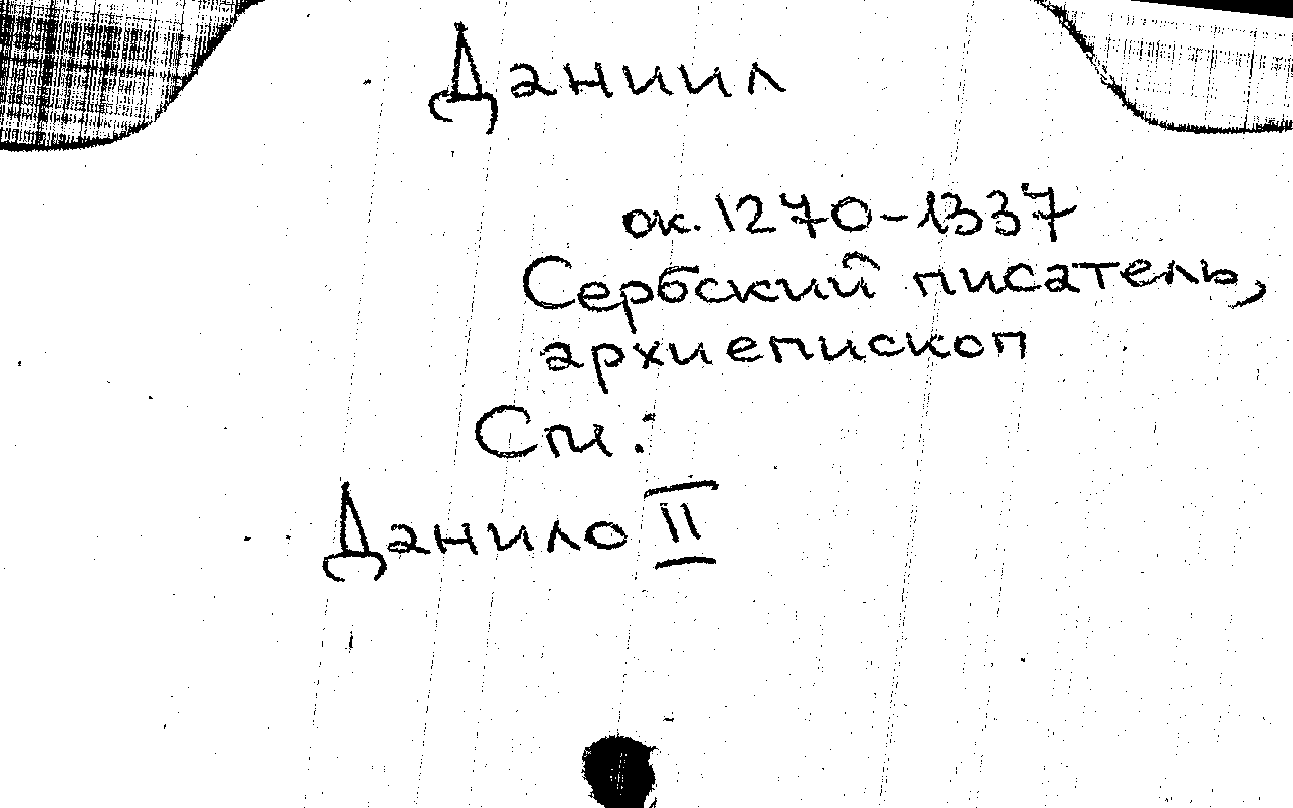 Даниил
ок. 1270-1337
Сербский писатель,
архиепископ
См.:
Данило II